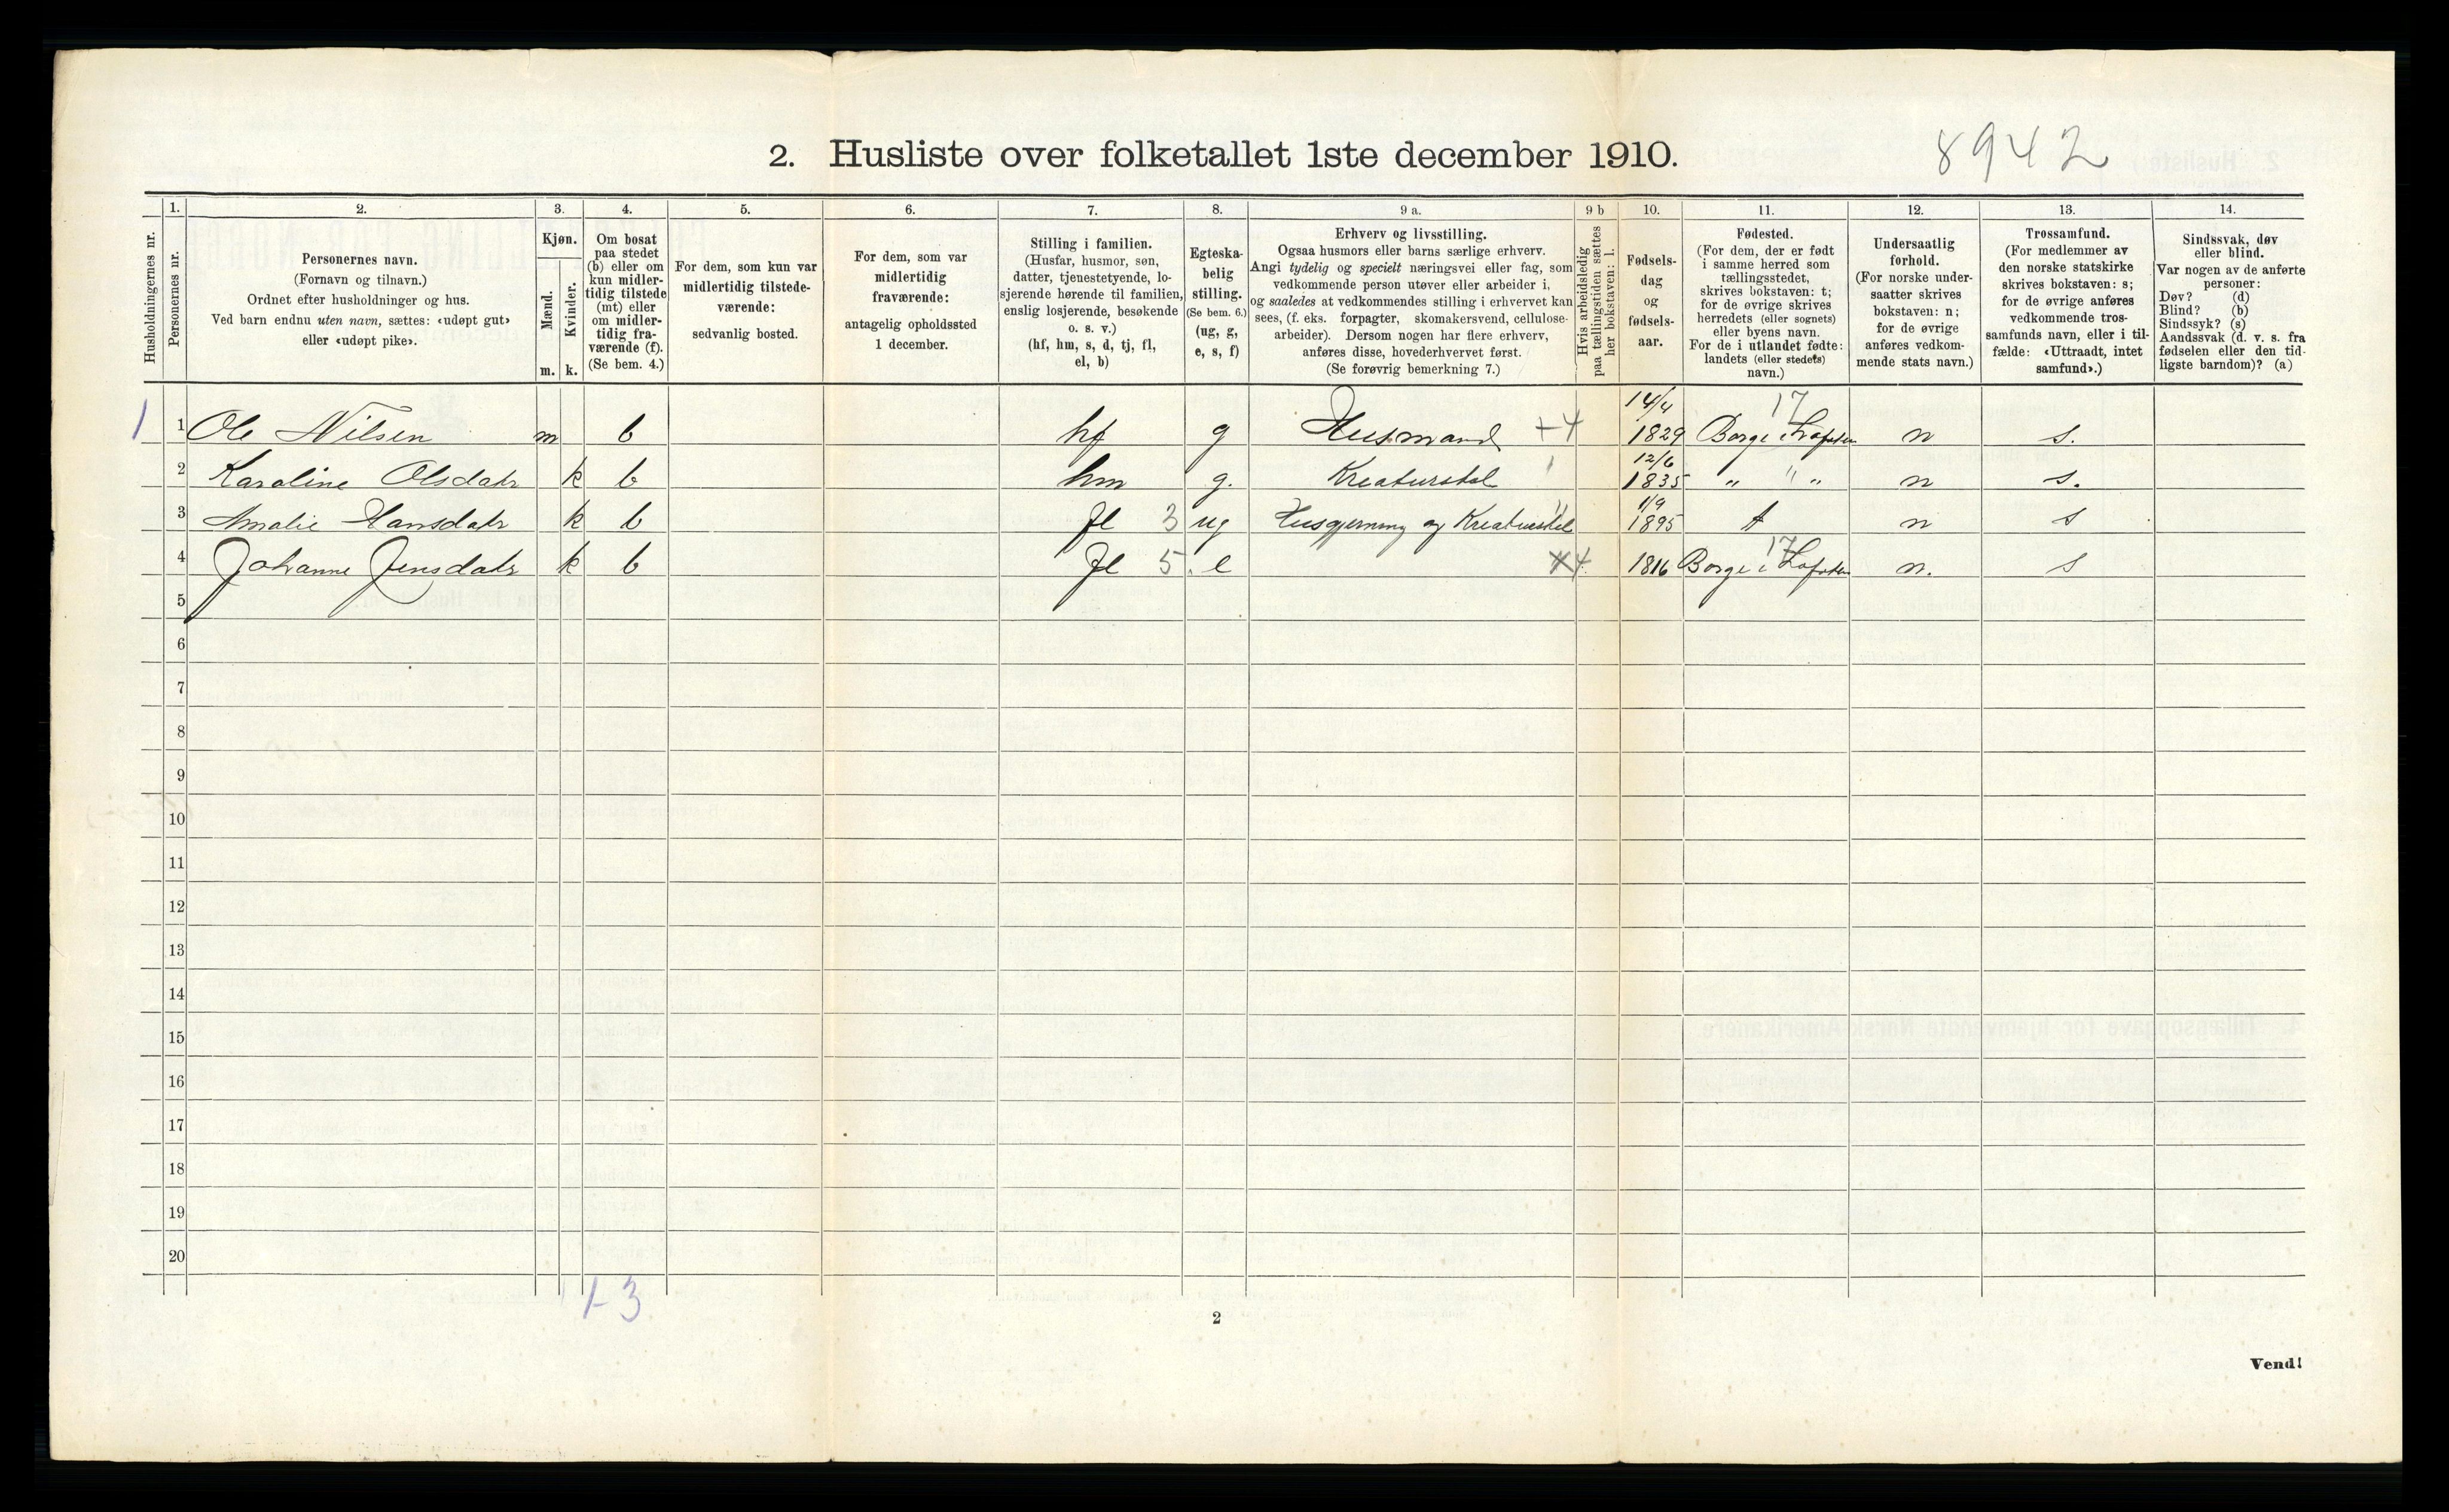 2. Husliste over folketallet 1ste december 1910.
8942
Husholdningernes nr.
1.
Personernes nr.
2.
Personernes navn.
(Fornavn og tilnavn.)
Ordnet efter husholdninger og hus.
Ved barn endnu uten navn, sættes: «udøpt gut»
eller «udøpt pike».
3.
Kjøn.
Mænd.
Kvinder.
m. k.
4.
Om bosat
paa stedet
(b) eller om
kun midler-
tidig tilstede
(mt) eller
om midler-
tidig fra-
værende (f).
(Se bem. 4.)
5.
For dem, som kun var
midlertidig tilstede-
værende:
sedvanlig bosted.
6.
For dem, som var
midlertidig
fraværende:
antagelig opholdssted
1 december.
7.
Stilling i familien.
(Husfar, husmor, søn,
datter, tjenestetyende, lo-
sjerende hørende til familien,
enslig losjerende, besøkende
o. s. v.)
(hf, hm, s, d, tj, fl,
el, b)
8.
Egteska-
belig
stilling.
(Se bem. 6.)
(ug, g,
e, s, f)
9 a.
Erhverv og livsstilling.
Ogsaa husmors eller barns særlige erhverv.
Angi tydelig og specielt næringsvei eller fag, som
vedkommende person utøver eller arbeider i,
og saaledes at vedkommendes stilling i erhvervet kan
sees, (f. eks. forpagter, skomakersvend, cellulose-
arbeider). Dersom nogen har flere erhverv,
anføres disse, hovederhvervet først.
(Se forøvrig bemerkning 7.)
9 b
Hvis arbeidsledig
paa tællingstiden sættes
her bokstaven: l.
10.
Fødsels-
dag
og
fødsels-
aar.
11.
Fødested.
(For dem, der er født
i samme herred som
tællingsstedet,
skrives bokstaven: t;
for de øvrige skrives
herredets (eller sognets)
eller byens navn.
For de i utlandet fødte:
landets (eller stedets)
navn.)
12.
Undersaatlig
forhold.
(For norske under-
saatter skrives
bokstaven: n;
for de øvrige
anføres vedkom-
mende stats navn.)
13.
Trossamfund.
(For medlemmer av
den norske statskirke
skrives bokstaven: s;
for de øvrige anføres
vedkommende tros-
samfunds navn, eller i til-
fælde: «Uttraadt, intet
samfund».)
14.
Sindssvak, døv
eller blind.
Var nogen av de anførte
personer:
Døv? (d)
Blind? (b)
Sindssyk? (s)
Aandssvak (d. v. s. fra
fødselen eller den tid-
ligste barndom)? (a)
1 1 Ole Nilsen m b hf g Husmand +4 14/4 1829 17 Borge i Lofoten n s.
2 Karoline Olsdatr k b hm g. Kreaturstel 12/6 1835 " " " n s.
3 Amalie Hansdatr k b fl 3 ug Husgjerning og Kreaturstel 1/9 1895 t n s
4 Johanne Jensdatr k b fl 5. e 1816 17 Borge i Lofoten n. s
5
6
7
8
9
10
11
12
13
14
15
16
17
18
19
20
1-3
2
Vend!